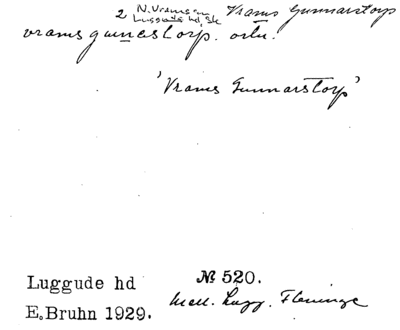 2 N. Vrams sn, Vrams Gunnarstorp
Luggude hd, Sk
vramsgunnestorp. ortn.
'Vrams Gunnarstorp'
Luggude hd № 520.
E. Bruhn 1929. Mell. Lugg. Fleninge